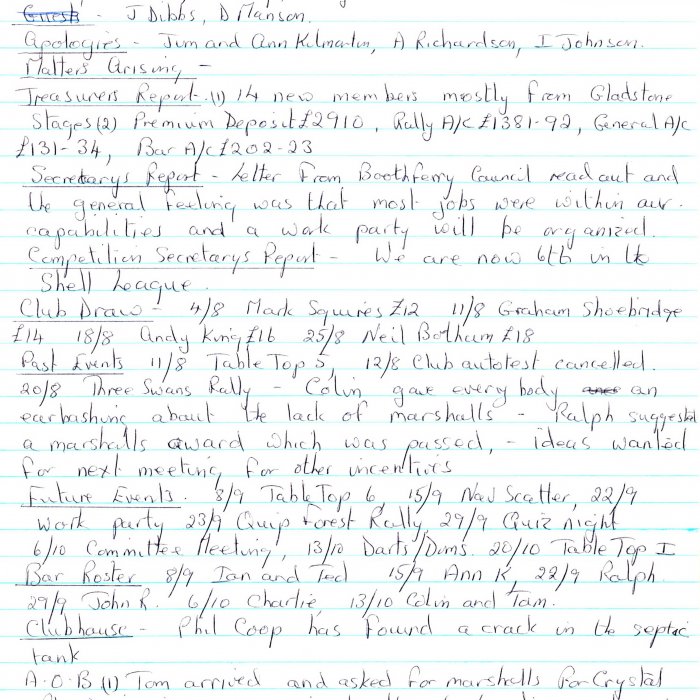 Guests - J Dibbs, D Manson.
Apologies - Jim and Ann Kilmartin, A Richardson, I Johnson.
Matters Arising -
Treasurers Report. (1) 14 new members mostly from Gladstone
Stages (2) Premium Deposit £2910, Rally A/c £1381-92, General A/c
£131-34, Bar A/c £202-23
Secretarys Report - Letter from Boothferry Council read out and
the general feeling was that most jobs were within our
capabilities and a work party will be organized.
Competition Secretarys Report - We are now 6th in the
Shell League.
Club Draw - 4/8 Mark Squires £12 11/8 Graham Shoebridge
£14 18/8 Andy King £16 25/8 Neil Botham £18
Past Events 11/8 Table Top 5, 12/8 Club autotest cancelled.
20/8 Three Swans Rally - Colin gave every body an
earbashing about the lack of marshalls - Ralph suggested
a marshalls award which was passed, - ideas wanted
for next meeting for other incentives
Future Events. 8/9 Table Top 6, 15/9 Nav Scatter, 22/9
work party 23/9 Quip Forest Rally, 29/9 Quiz night
6/10 Committee Meeting, 13/10 Darts/Doms. 20/10 Table Top I
Bar Roster 8/9 Ian and Ted 15/9 Ann K, 22/9 Ralph.
29/9 John R. 6/10 Charlie, 13/10 Colin and Tom.
Clubhouse - Phil Coop has found a crack in the septic
tank
A.O.B (1) Tom arrived and asked for marshalls for Crystal